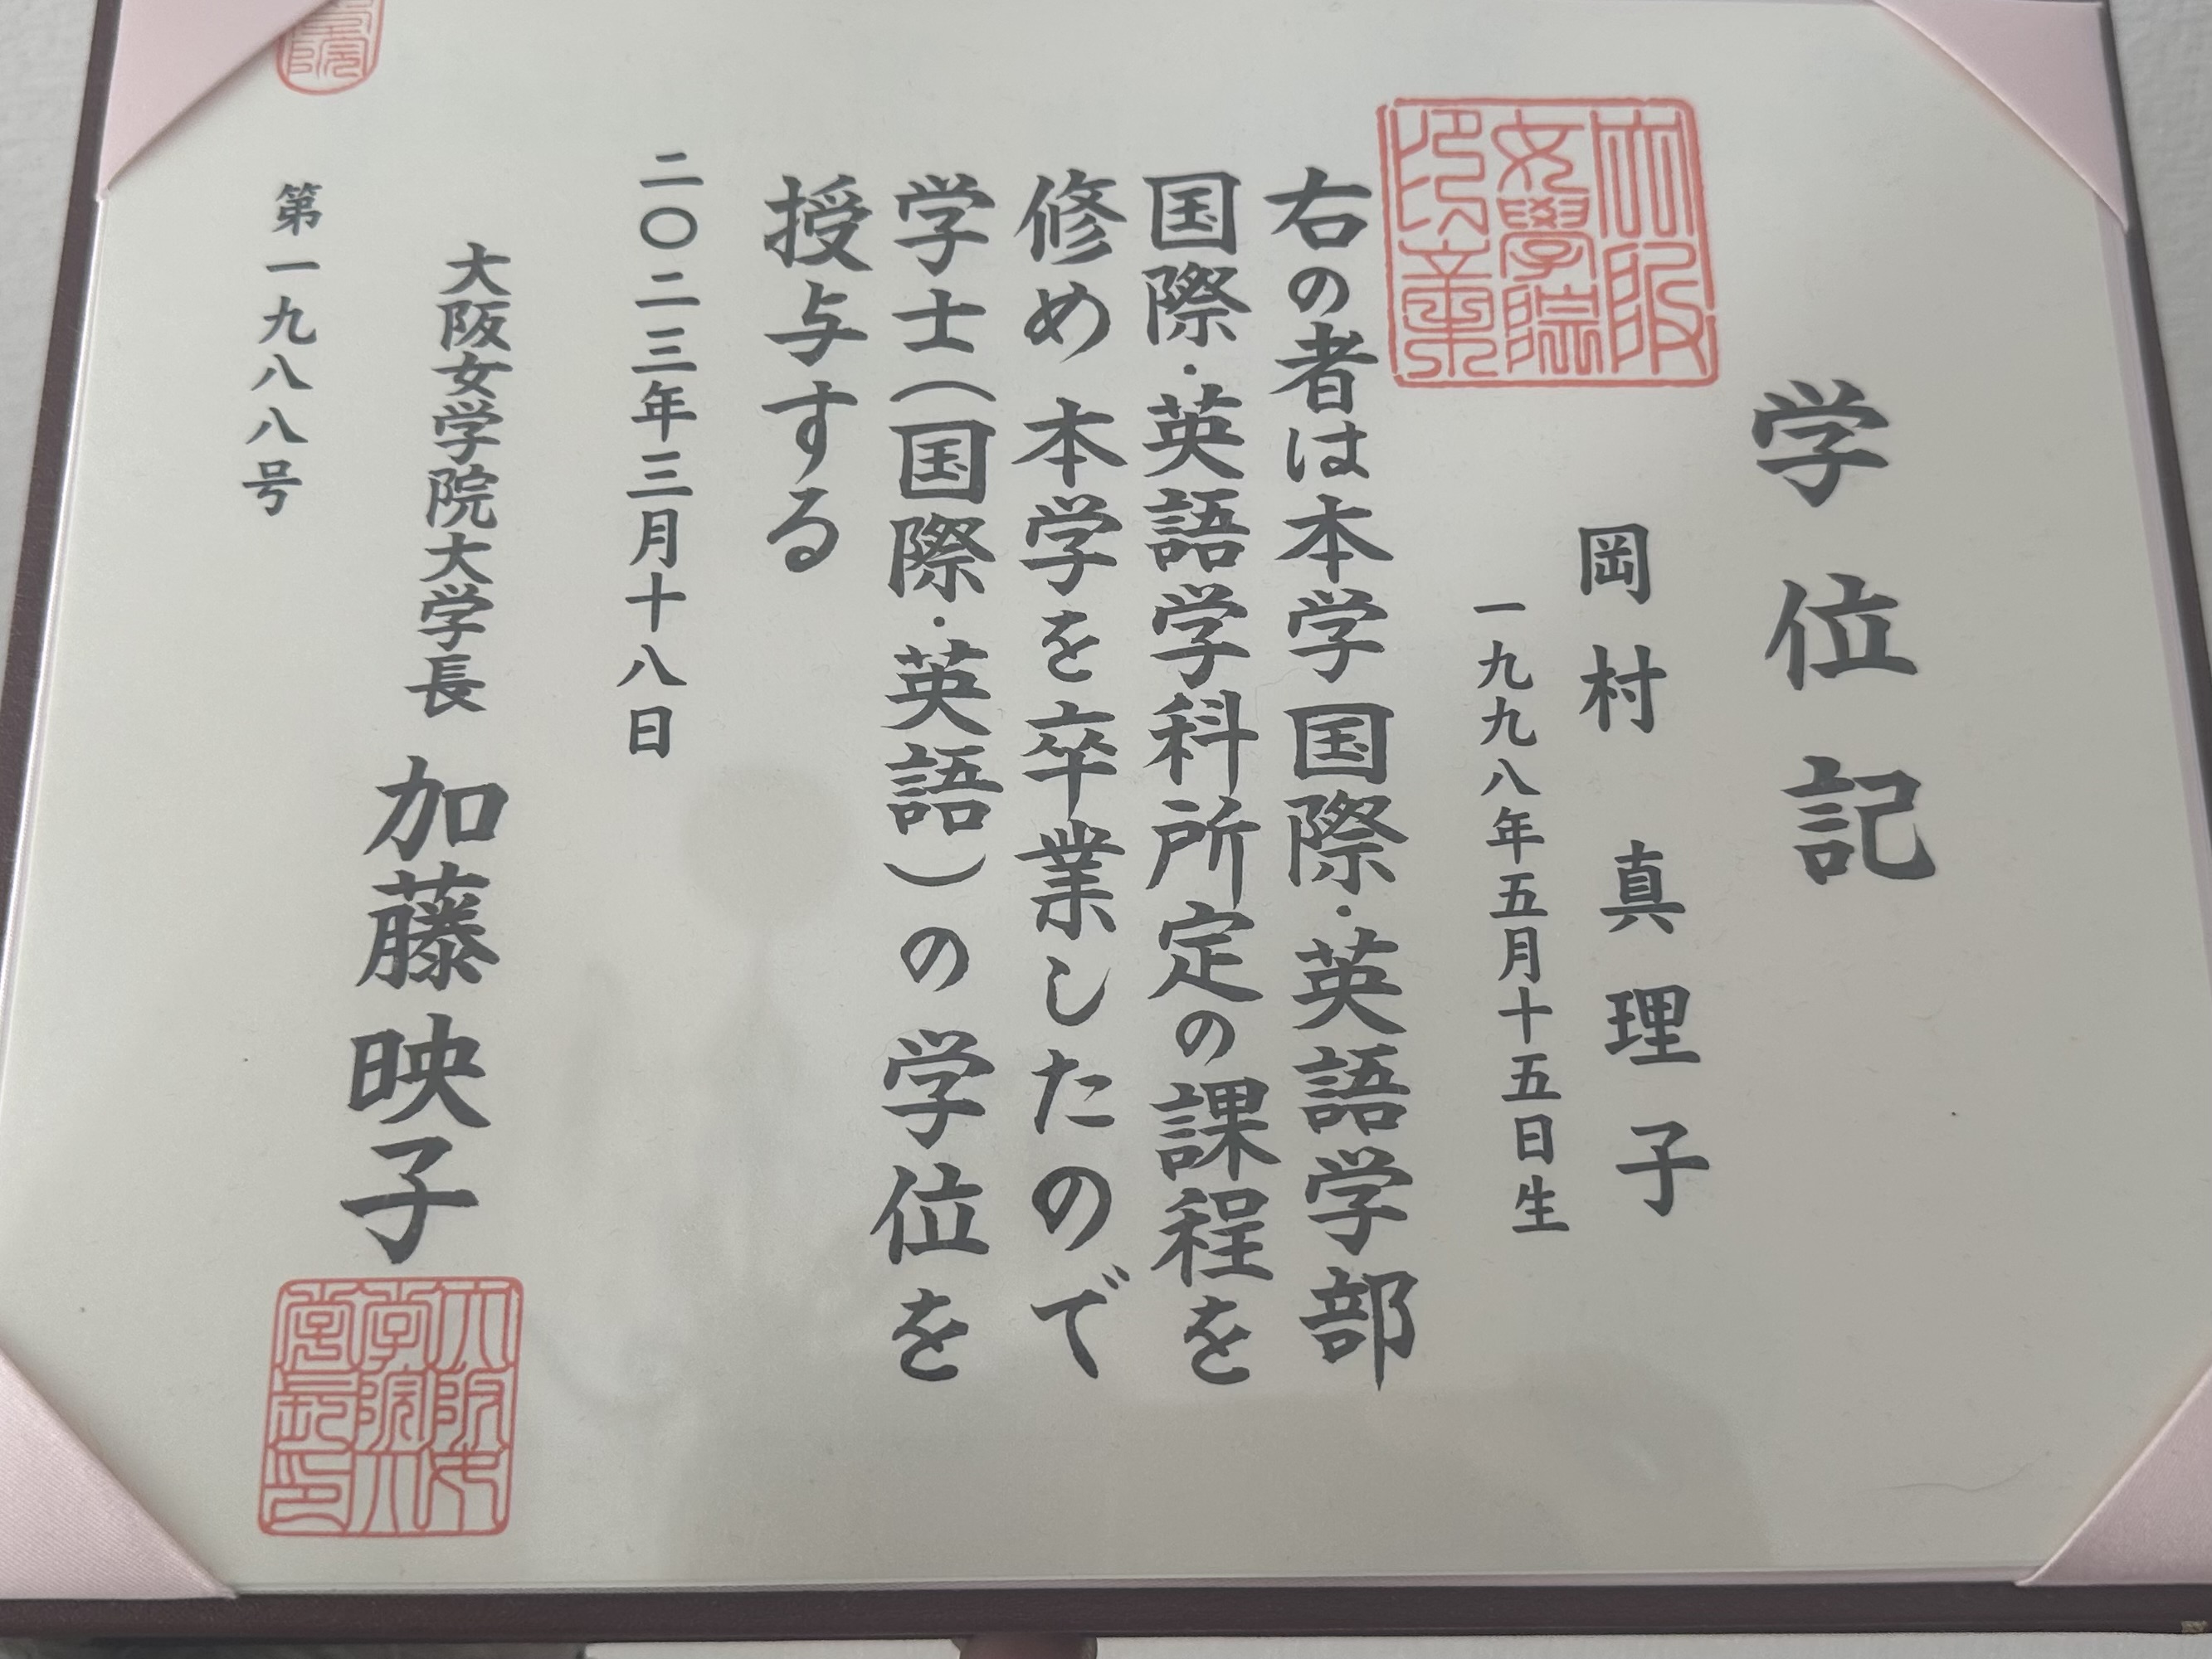 学位記
岡村 真理子
一九九八年五月十五日生
右の者は本学国際・英語学部
国際・英語学科所定の課程を
修め本学を卒業したので
学士(国際・英語)の学位を
授与する
二〇二三年三月十八日
大阪女学院大学長 加藤映子
第一九八八号
大阪女學院印章
大阪女学院大学長印